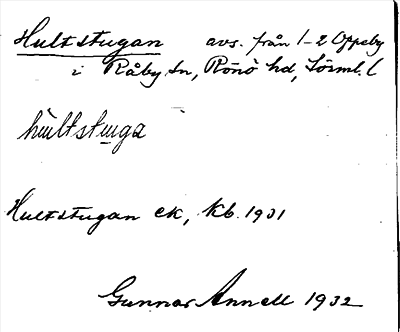 Hultstugan avs. från 1-2 Oppeby
i Råby sn, Rönö hd, Sörml. l
hùltstuga
Hultstugan ek, Kb. 1931
Gunnar Annell 1932